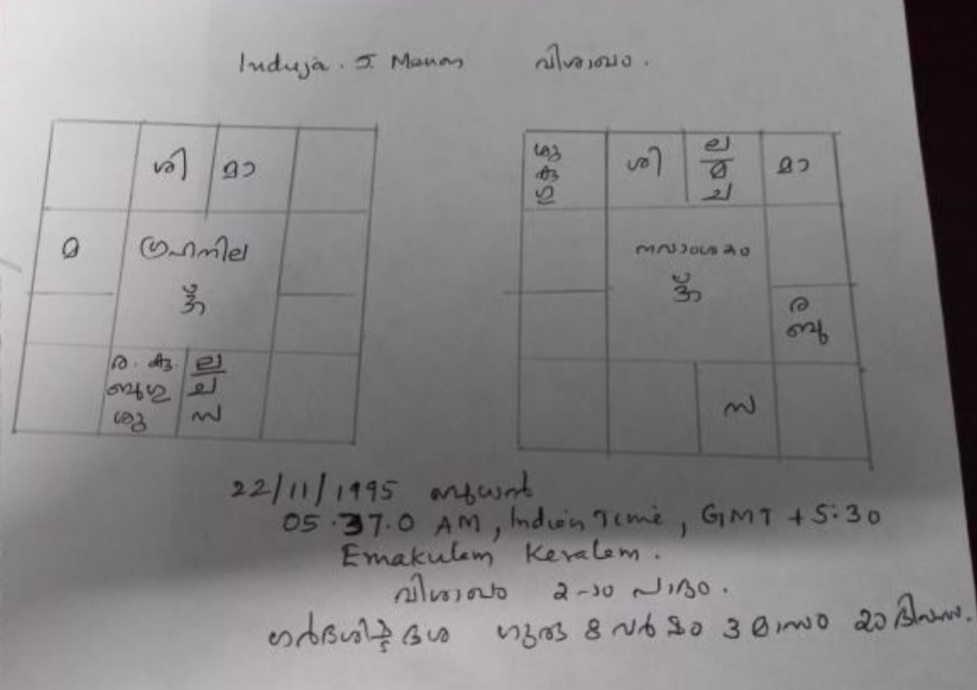 Induja. J. Menon വിശാഖം.
ശി മാ
മ ഗ്രഹനില
ഓം
ര. കു ല
ബു ഗു ച
ശു സ
ശു ശി ല മാ
കു മ
ഗു ച
നവാംശകം
ഓം
ര
ബു
സ
22/11/1995 ബുധൻ
05.37.0 AM, Indian Time, GMT +5:30
Ernakulam Keralam.
വിശാഖം 2-ാo പാദം.
ഗർഭശിഷ്ട ദശ ഗുരു 8 വർഷം 3 മാസം 20 ദിവസം.